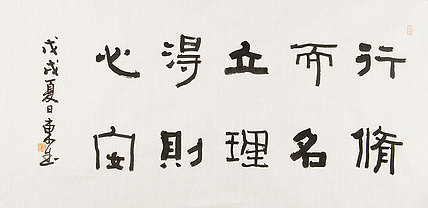 行脩
而名
立理
得則
心安
戊戌夏日東